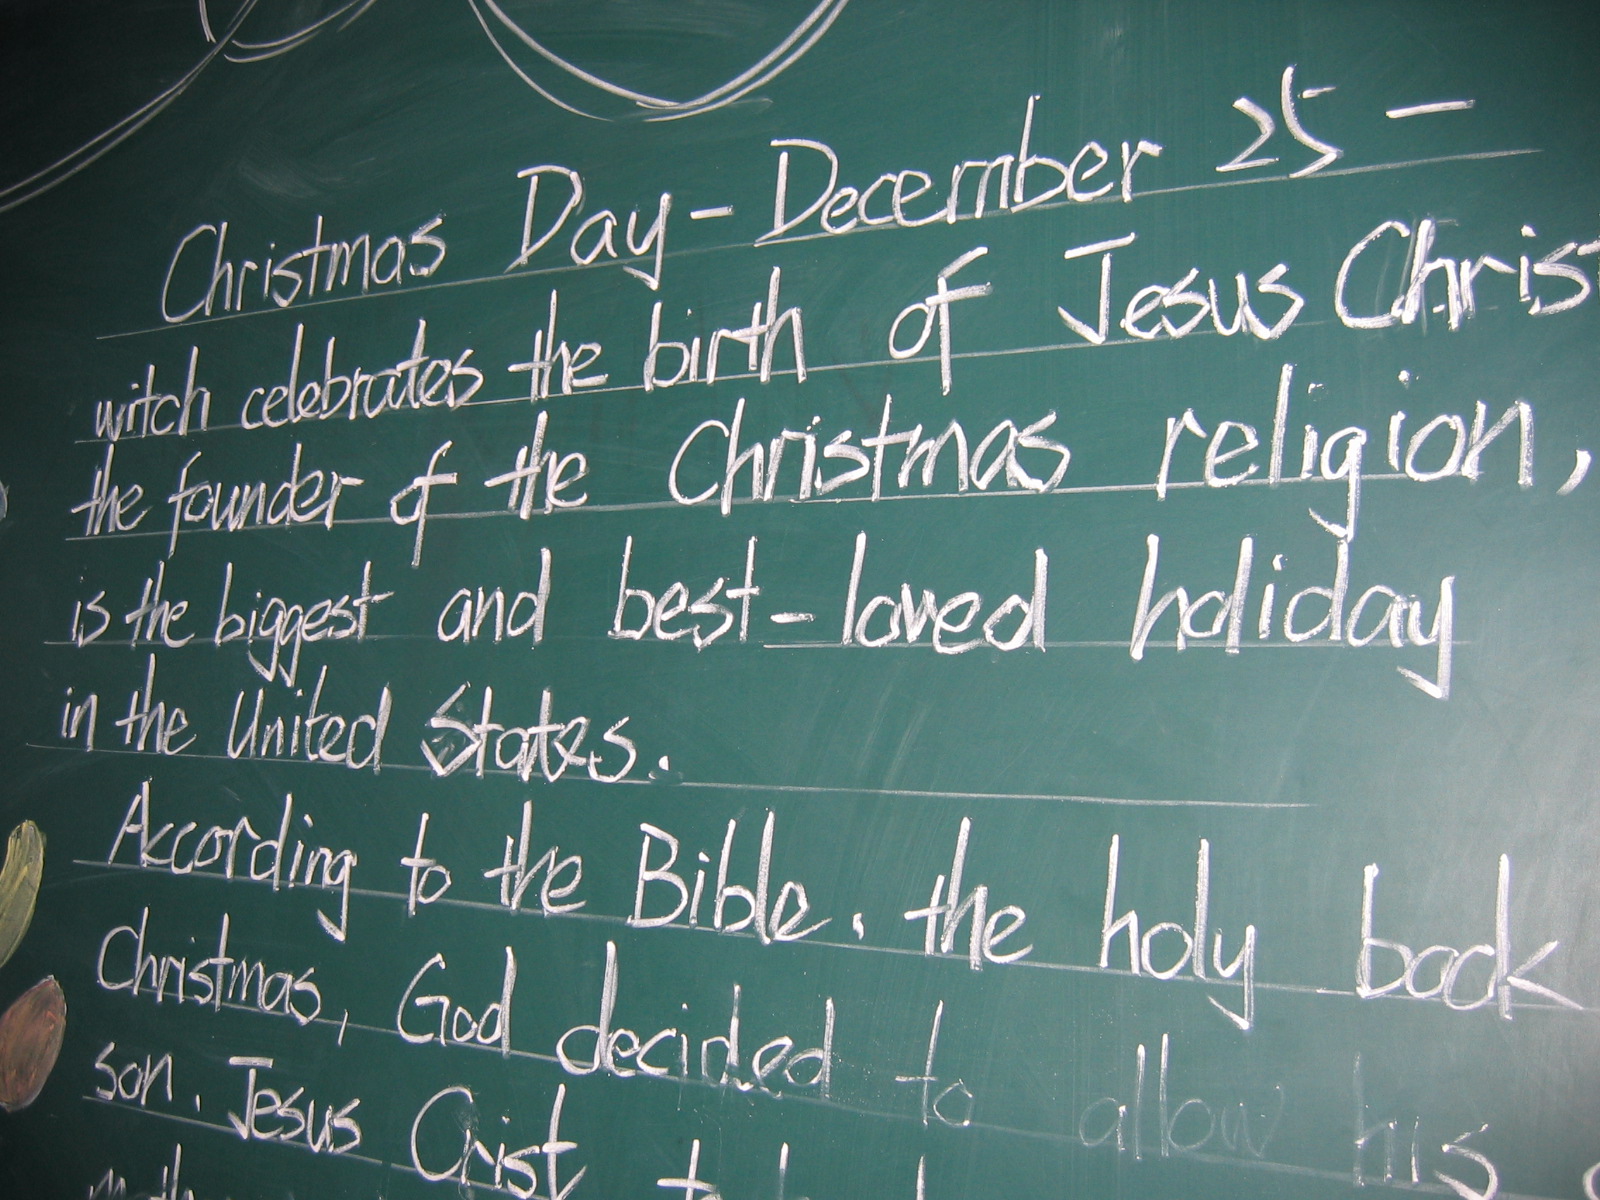 Christmas Day - December 25 -
witch celebrates the birth of Jesus Christ
the founder of the Christmas religion,
is the biggest and best-loved holiday
in the United States.
According to the Bible. the holy book
Christmas, God decided to allow his
son. Jesus Crist to